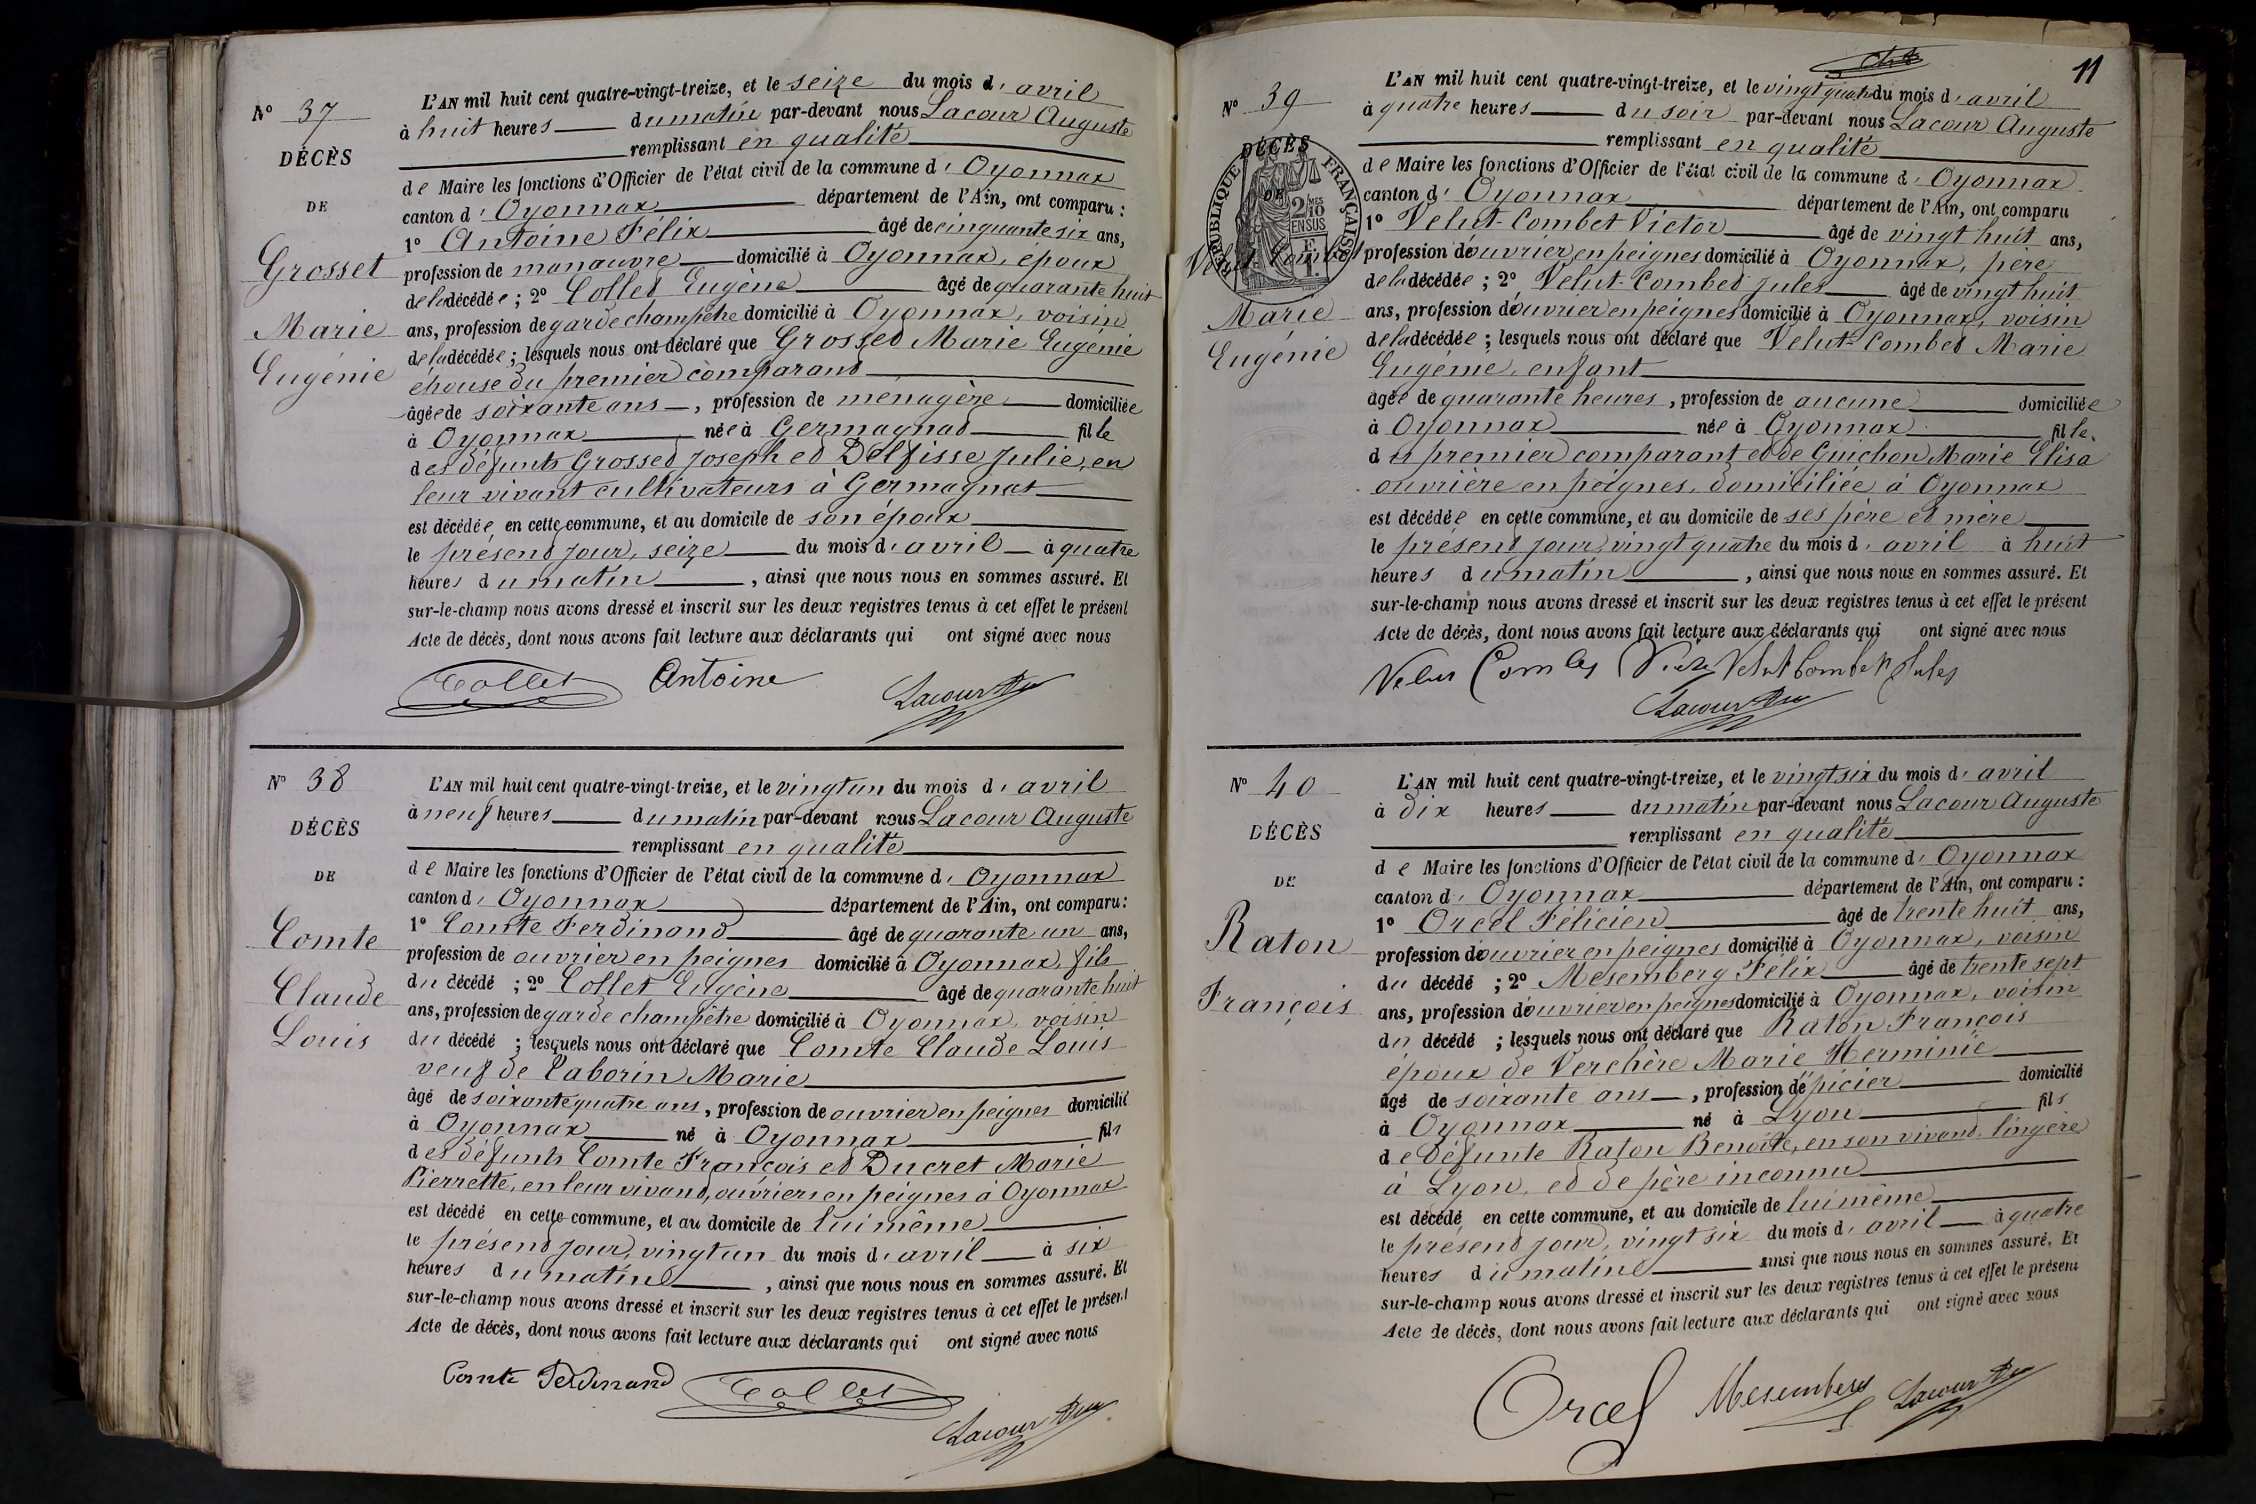 N° 37
DÉCÈS
DE
Grosset
Marie
Eugénie
L'AN mil huit cent quatre-vingt-treize, et le seize du mois d'avril
à huit heures du matin par-devant nous Lacour Auguste
remplissant en qualité
de Maire les fonctions d'Officier de l'état civil de la commune d'Oyonnax
canton d'Oyonnax département de l'Ain, ont comparu :
1° Antoine Félix âgé de cinquante six ans,
profession de manœuvre domicilié à Oyonnax, époux
de la décédée ; 2° Collet Eugène âgé de quarante huit
ans, profession de garde champêtre domicilié à Oyonnax, voisin
de la décédée ; lesquels nous ont déclaré que Grosset Marie Eugénie
épouse du premier comparant
âgée de soixante ans, profession de ménagère domiciliée
à Oyonnax née à Germagnat fille
des défunts Grosset Joseph et Delfisse Julie, en
leur vivant cultivateurs à Germagnat
est décédée en cette commune, et au domicile de son époux
le présent jour, seize du mois d'avril à quatre
heures du matin, ainsi que nous nous en sommes assuré. Et
sur-le-champ nous avons dressé et inscrit sur les deux registres tenus à cet effet le présent
Acte de décès, dont nous avons fait lecture aux déclarants qui ont signé avec nous
Collet Antoine Lacour
N° 38
DÉCÈS
DE
Comte
Claude
Louis
L'AN mil huit cent quatre-vingt-treize, et le vingt un du mois d'avril
à neuf heures du matin par-devant nous Lacour Auguste
remplissant en qualité
de Maire les fonctions d'Officier de l'état civil de la commune d'Oyonnax
canton d'Oyonnax département de l'Ain, ont comparu :
1° Comte Ferdinand âgé de quarante un ans,
profession de ouvrier en peignes domicilié à Oyonnax, fils
du décédé ; 2° Collet Eugène âgé de quarante huit
ans, profession de garde champêtre domicilié à Oyonnax, voisin
du décédé ; lesquels nous ont déclaré que Comte Claude Louis
veuf de Taborin Marie
âgé de soixante quatre ans, profession de ouvrier en peignes domicilié
à Oyonnax né à Oyonnax fils
des défunts Comte François et Ducret Marie
Pierrette, en leur vivant, ouvriers en peignes à Oyonnax
est décédé en cette commune, et au domicile de lui même
le présent jour, vingt un du mois d'avril à six
heures du matin, ainsi que nous nous en sommes assuré. Et
sur-le-champ nous avons dressé et inscrit sur les deux registres tenus à cet effet le présent
Acte de décès, dont nous avons fait lecture aux déclarants qui ont signé avec nous
Comte Ferdinand Collet Lacour
11
N° 39
DÉCÈS
DE
RÉPUBLIQUE FRANÇAISE
2 MES 10 EN SUS
Velut-Combet
Marie
Eugénie
L'AN mil huit cent quatre-vingt-treize, et le vingt quatre du mois d'avril
à quatre heures du soir par-devant nous Lacour Auguste
remplissant en qualité
de Maire les fonctions d'Officier de l'état civil de la commune d'Oyonnax
canton d'Oyonnax département de l'Ain, ont comparu
1° Velut-Combet Victor âgé de vingt huit ans,
profession d'ouvrier en peignes domicilié à Oyonnax, père
de la décédée ; 2° Velut-Combet Jules âgé de vingt huit
ans, profession d'ouvrier en peignes domicilié à Oyonnax, voisin
de la décédée ; lesquels nous ont déclaré que Velut-Combet Marie
Eugénie, enfant
âgée de quarante heures, profession de aucune domiciliée
à Oyonnax née à Oyonnax fille
du premier comparant et de Guichon Marie Elisa
ouvrière en peignes, domiciliée à Oyonnax
est décédée en cette commune, et au domicile de ses père et mère
le présent jour, vingt quatre du mois d'avril à huit
heures du matin, ainsi que nous nous en sommes assuré. Et
sur-le-champ nous avons dressé et inscrit sur les deux registres tenus à cet effet le présent
Acte de décès, dont nous avons fait lecture aux déclarants qui ont signé avec nous
Velut Combet Victor Velut Combet Jules
Lacour
N° 40
DÉCÈS
DE
Raton
François
L'AN mil huit cent quatre-vingt-treize, et le vingt six du mois d'avril
à dix heures du matin par-devant nous Lacour Auguste
remplissant en qualité
de Maire les fonctions d'Officier de l'état civil de la commune d'Oyonnax
canton d'Oyonnax département de l'Ain, ont comparu :
1° Orcel Félicien âgé de trente huit ans,
profession d'ouvrier en peignes domicilié à Oyonnax, voisin
du décédé ; 2° Mesemberg Félix âgé de trente sept
ans, profession d'ouvrier en peignes domicilié à Oyonnax, voisin
du décédé ; lesquels nous ont déclaré que Raton François
époux de Verchère Marie Herminie
âgé de soixante ans, profession d'épicier domicilié
à Oyonnax né à Lyon fils
de défunte Raton Benoîte, en son vivant, lingère
à Lyon, et de père inconnu
est décédé en cette commune, et au domicile de lui même
le présent jour, vingt six du mois d'avril à quatre
heures du matin ainsi que nous nous en sommes assuré. Et
sur-le-champ nous avons dressé et inscrit sur les deux registres tenus à cet effet le présent
Acte de décès, dont nous avons fait lecture aux déclarants qui ont signé avec nous
Orcel Mesemberg Lacour